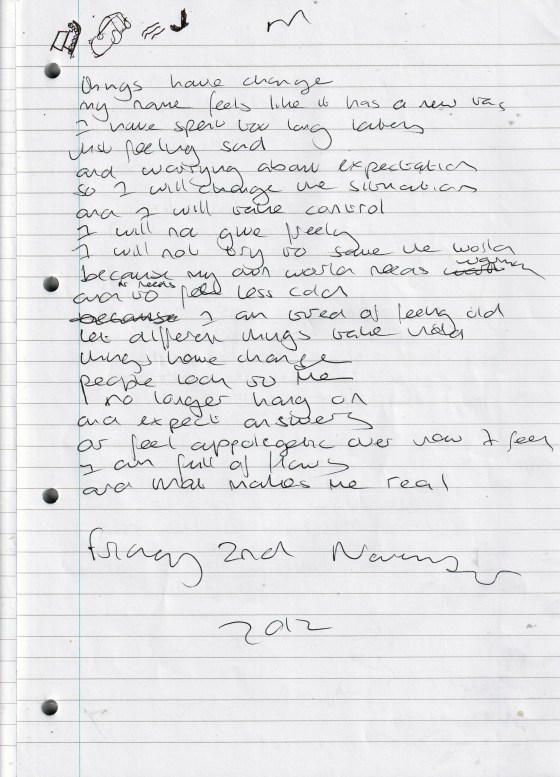 M
things have change
my name feels like it has a new tag
I have spent too long lately
just feeling sad
and worrying about expectation
so I will change the situation
and I will take control
I will not give freely
I will not try to save the world
because my own world needs warming
and it needs to feel less cold
because I am tired of feeling old
let different things take hold
things have change
people look to me
I no longer hang on
and expect answers
or feel appologetic over how I feel
I am full of flaws
and that makes me real
Friday 2nd November
2012